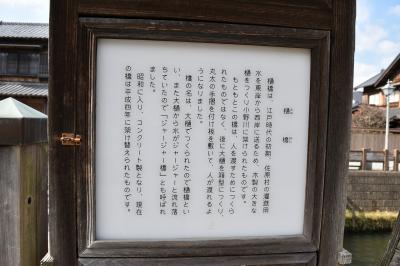 樋橋
樋橋は、江戸時代の初期、佐原村の灌漑用
水を東岸から西岸に送るため、木製の大きな
樋をつくり小野川に架けられたものです。
もともとこの橋は、人を渡すためにつくら
れたものではなく、後に大樋を箱型につくり、
丸太の手摺を付け板を敷いて、人が渡れるよ
うになりました。
橋の名は、大樋でつくられたので樋橋とい
い、また大樋から水がジャージャーと流れ落
ちていたので「ジャージャー橋」とも呼ばれ
ました。
昭和に入り、コンクリート製となり、現在
の橋は平成四年に架け替えられたものです。